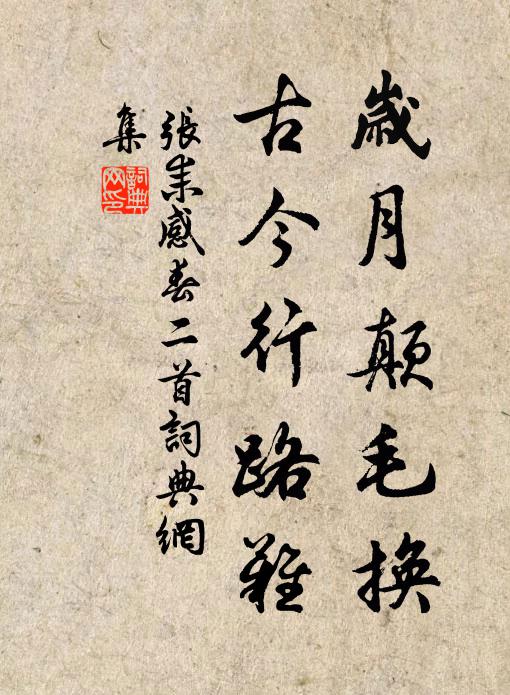 歲月顛毛換
古今行路難
張耒感春二首詞典網
集
詞典
网印